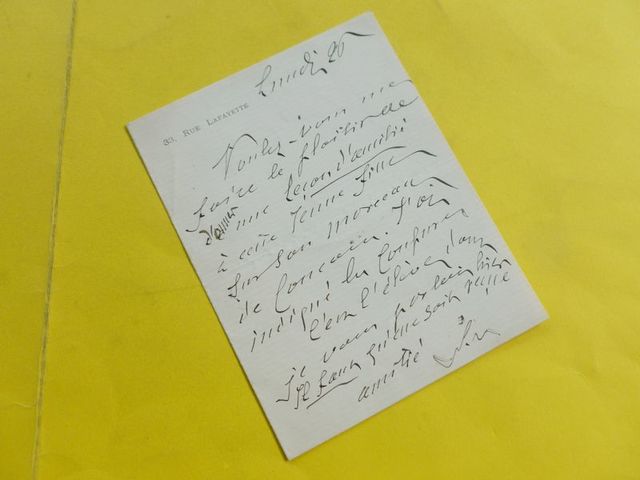 33, RUE LAFAYETTE
Lundi 26
Voulez-vous me
faire le plaisir de
donner une leçon d'amitié
à cette jeune fille
sur son morceau
de concours. J'ai
indiqué les coupures
C'est l'élève dont
je vous parlais hier
Il faut qu'elle soit reçue
amitié